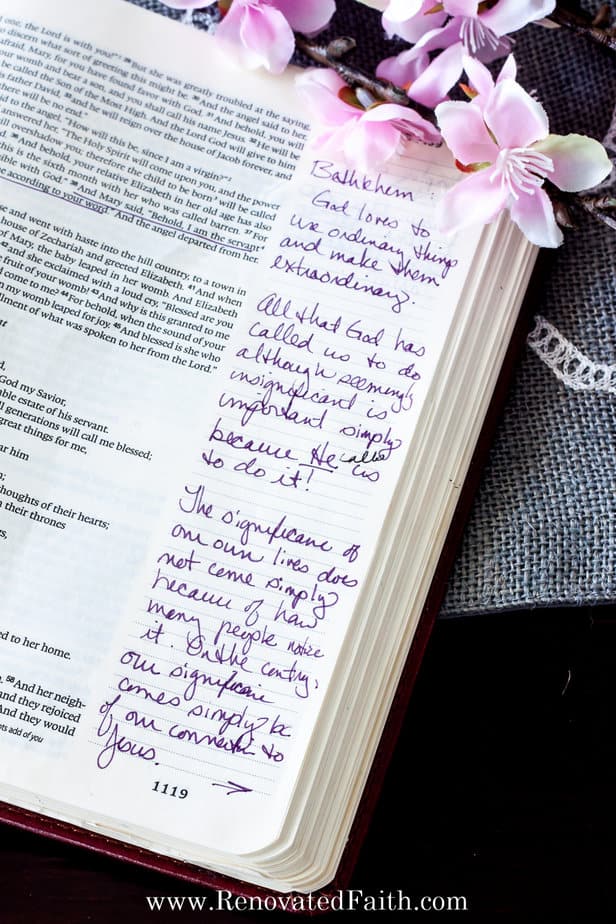 one, the Lord is with you!" But she was greatly troubled at the saying
to discern what sort of greeting this might be. And the angel said to her,
afraid, Mary, for you have found favor with God. And behold, you will
your womb and bear a son, and you shall call his name Jesus. He will be
be called the Son of the Most High. And the Lord God will give to him
his father David, and he will reign over the house of Jacob forever, and
there will be no end."
d to the angel, "How will this be, since I am a virgin?"
answered her, "The Holy Spirit will come upon you, and the power
overshadow you; therefore the child to be born will be called
d. And behold, your relative Elizabeth in her old age has also
this is the sixth month with her who was called barren. For
sible with God." And Mary said, "Behold, I am the servant
e according to your word." And the angel departed from her.
se and went with haste into the hill country, to a town in
house of Zechariah and greeted Elizabeth. And when
of Mary, the baby leaped in her womb. And Elizabeth
and she exclaimed with a loud cry, "Blessed are you
e fruit of your womb! And why is this granted to me
d come to me? For behold, when the sound of your
n my womb leaped for joy. And blessed is she who
illment of what was spoken to her from the Lord."
d,
God my Savior,
ble estate of his servant.
l generations will call me blessed;
great things for me,
ar him
n;
thoughts of their hearts;
n their thrones
s,
ed to her home.
58 And her neigh-
and they rejoiced
And they would
pts add of you
Bethlehem :
God loves to
use ordinary things
and make them
extraordinary.
All that God has
called us to do
although seemingly
insignificant is
important simply
because He called us
to do it!
The significance of
our own lives does
not come simply
because of how
many people notice
it. On the contrary,
our significance
comes simply bc
of our connection to
Jesus.
→
1119
www.RenovatedFaith.com